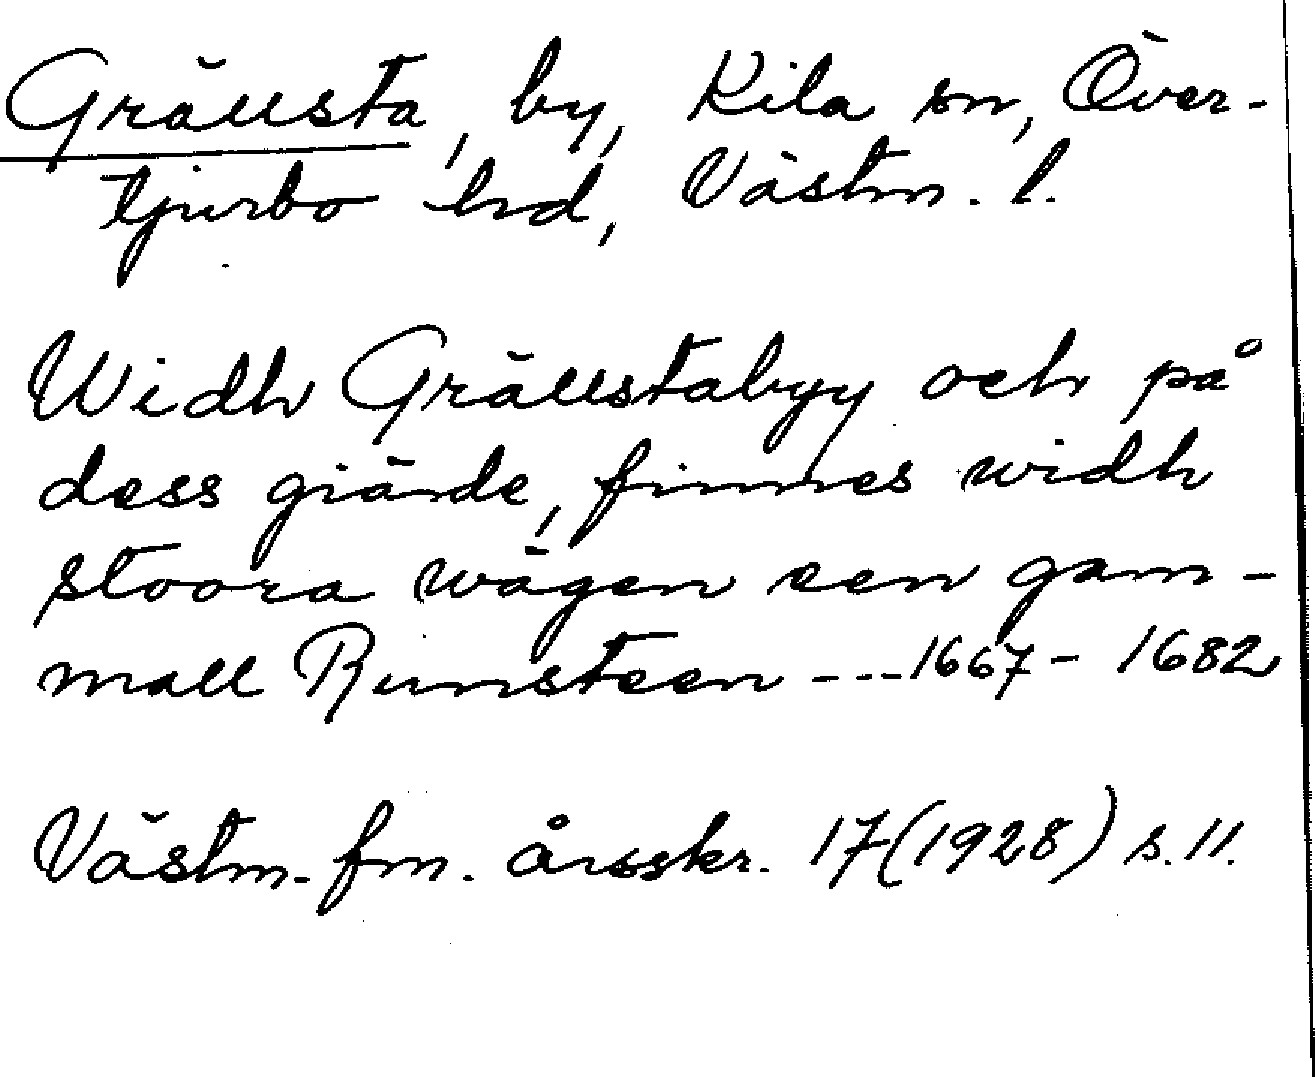 Grällsta, by, Kila sn, Över-
tjurbo hd, Västm. l.
Widh Grällstabyy och på
dess giärde, finnes widh
stoora wägen een gam-
mall Runsteen ---1667- 1682
Västm. fm. årsskr. 17(1928) s. 11.